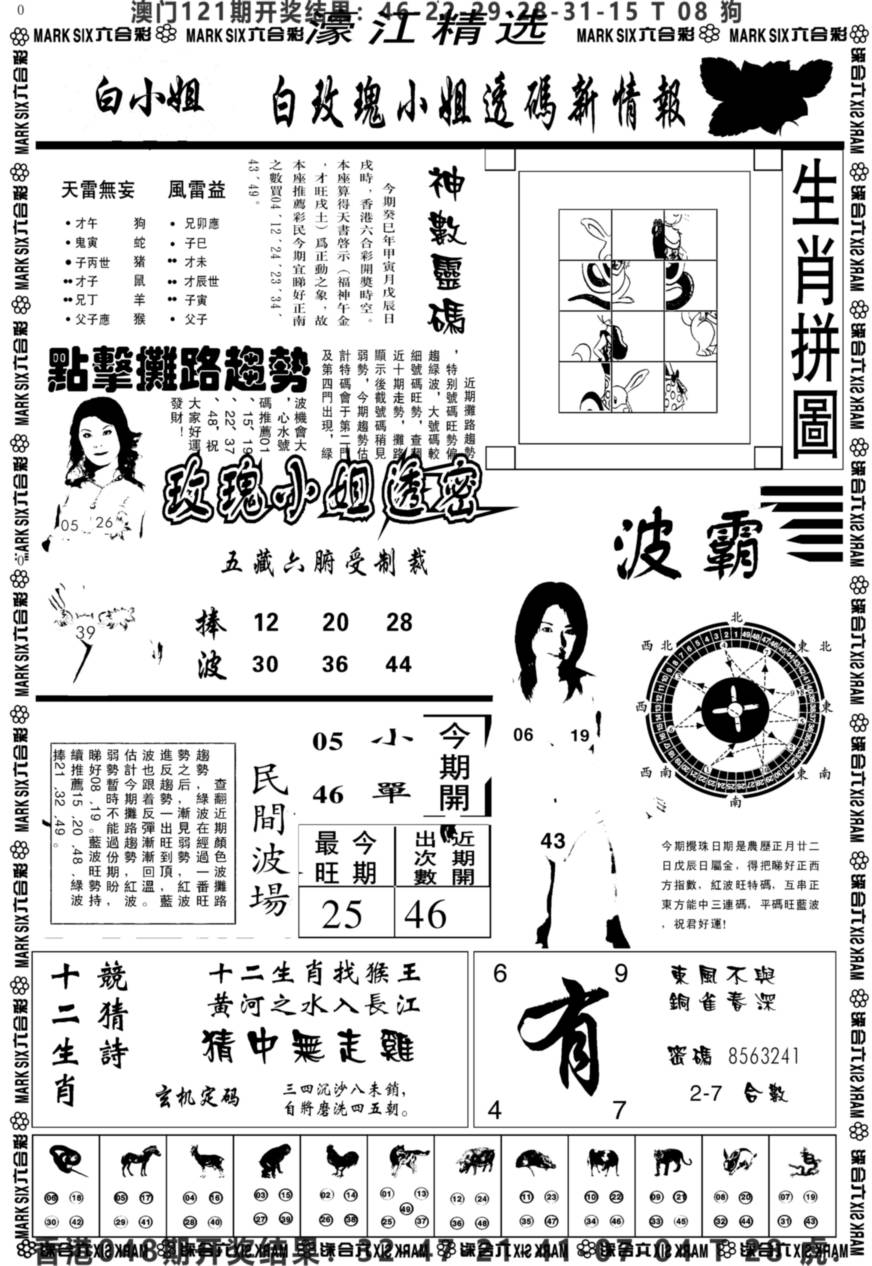 澳门121期开奖结果：46-22-29-23-31-15 T 08 狗
MARK SIX六合彩 MARK SIX六合彩 濠江精选 MARK SIX六合彩 MARK SIX六合彩
白小姐 白玫瑰小姐透碼新情報
天雷無妄 風雷益
•才午 狗 •兄卯應
•鬼寅 蛇 •子巳
•子丙世 猪 ••才未
••才子 鼠 ••才辰世
••兄丁 羊 ••子寅
•父子應 猴 •父子
今期癸巳年甲寅月戊辰日
戌時，香港六合彩開獎時空。
本座算得天書啓示（福神午金
，才旺戌土）爲正動之象，故
本座推薦彩民今期宜睇好正南
之數買04、12、24、23、34、
43、49。
神數靈碼
生肖拼圖
點擊攤路趨勢
近期攤路趨勢
，特别號碼旺勢偏
趨綠波，大號碼較
細號碼旺勢，查翻
近十期走勢，攤路
顯示後截號碼稍見
弱勢，今期趨勢估
計特碼會于第二門
及第四門出現，綠
波機會大
，心水號
碼推薦01
、15、19
、22、37
、48，祝
大家好運
發財！
05 26
39
玫瑰小姐透密
五藏六腑受制裁
捧 12 20 28
波 30 36 44
波霸
北
西北 東北
西 東
西南 東南
南
06 19
43
今期攪珠日期是農歷正月廿二
日戊辰日屬金，得把睇好正西
方指數，紅波旺特碼，互串正
東方能中三連碼，平碼旺藍波
，祝君好運!
查翻近期顏色攤路
趨勢，綠波在經過一波旺
勢之后，漸見弱勢，紅番藍
進反趨勢一出旺到頂，
波也跟着反彈漸漸回溫，
估計今期攤路趨勢紅波。
弱勢暫時不能過份期盼，
睇好08、19。藍波旺勢持
續推薦15、20、48，綠波
捧21、32、49。
民間波場
05 小
46 單
今期開
最旺 今期
出次數 近期開
25 46
十二生肖
競猜詩
十二生肖找猴王
黄河之水入長江
猜中無走雞
玄机定码
三四沉沙八未銷，
自將磨洗四五朝。
6 9
有
4 7
東風不與
銅雀春深
密碼 8563241
2-7 合數
06 18 05 17 04 16 03 15 02 14 01 13 12 24 11 23 10 22 09 21 08 20 07 19
49
30 42 29 41 28 40 27 39 26 38 25 37 36 48 35 47 34 46 33 45 32 44 31 43
香港048期开奖结果：32-47-21-41-07-04 T 28 虎.